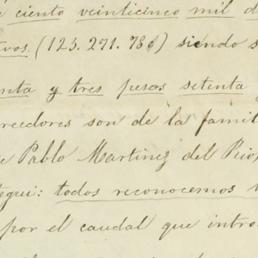 ciento veinticinco mil d
tvos. (125.271.786) siendo s
nta y tres pesos setenta
reedores son de la famil
e Pablo Martinez del Rio,
tegui: todos reconocemos
por el caudal que intro